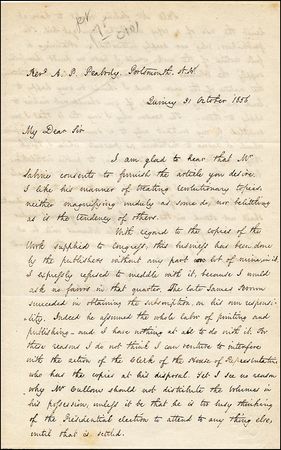 Rev. A. P. Peabody, Portsmouth, N.H.
Quincy 31 October 1856
My Dear Sir
I am glad to hear that Mr
Sabine consents to furnish the article you desire.
I like his manner of treating revolutionary topics,
neither magnifying unduly as some do, nor belittling
as is the tendency of others.
With regard to the copies of the
Work supplied to Congress, this business has been done
by the publishers without any part or lot of mine in it.
I expressly refused to meddle with it, because I would
ask no favors in that quarter. The late James Brown
succeeded in obtaining the subscription, on his own responsi-
bility. Indeed he assumed the whole labor of printing and
publishing, and I have nothing at all to do with it. For
these reasons I do not think I can venture to interfere
with the action of the Clerk of the House of Representatives
who has the copies at his disposal. Yet I see no reason
why Mr Cullom should not distribute the volumes in
his possession, unless it be that he is too busy thinking
of the Presidential election to attend to any thing else,
until that is settled.